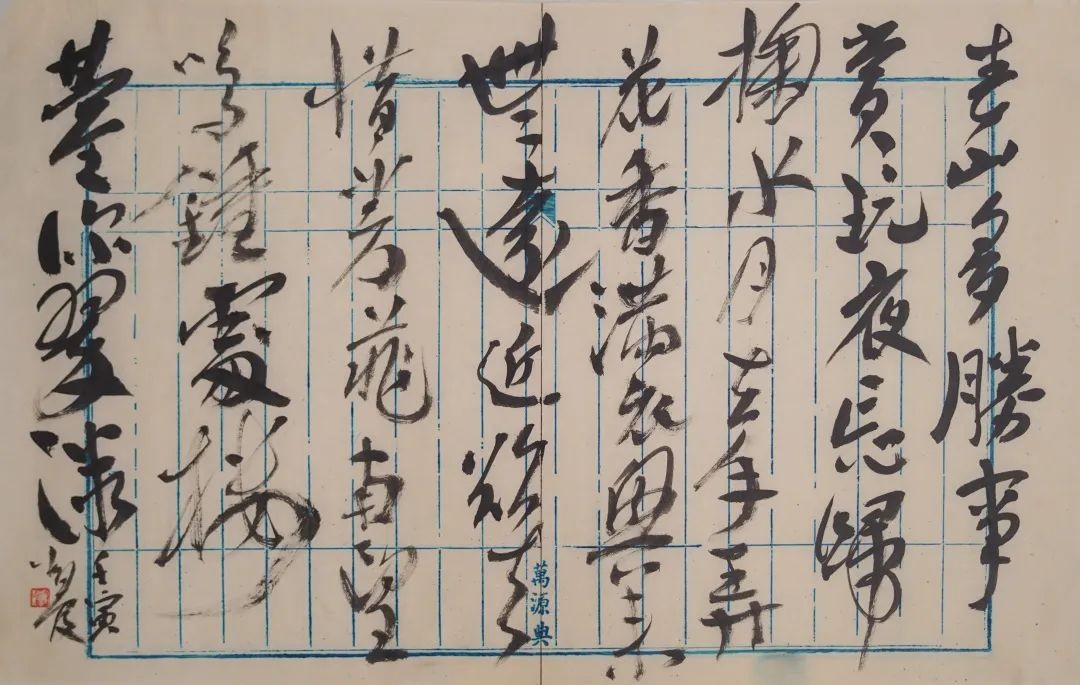 春山多勝事
賞玩夜忘歸
掬水月在手弄
花香滿衣興來
無遠近欲去
惜芳菲南望
鳴鐘處樓
臺深翠微
壬寅
萬源典